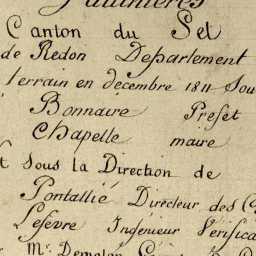 Canton du Sel
de Redon Département
terrain en décembre 1811 Sou
Bonnaire Préfet
Chapelle maire
t sous la Direction de
Pontallié Directeur des C
Lefévre Ingénieur Vérifica
Mr.